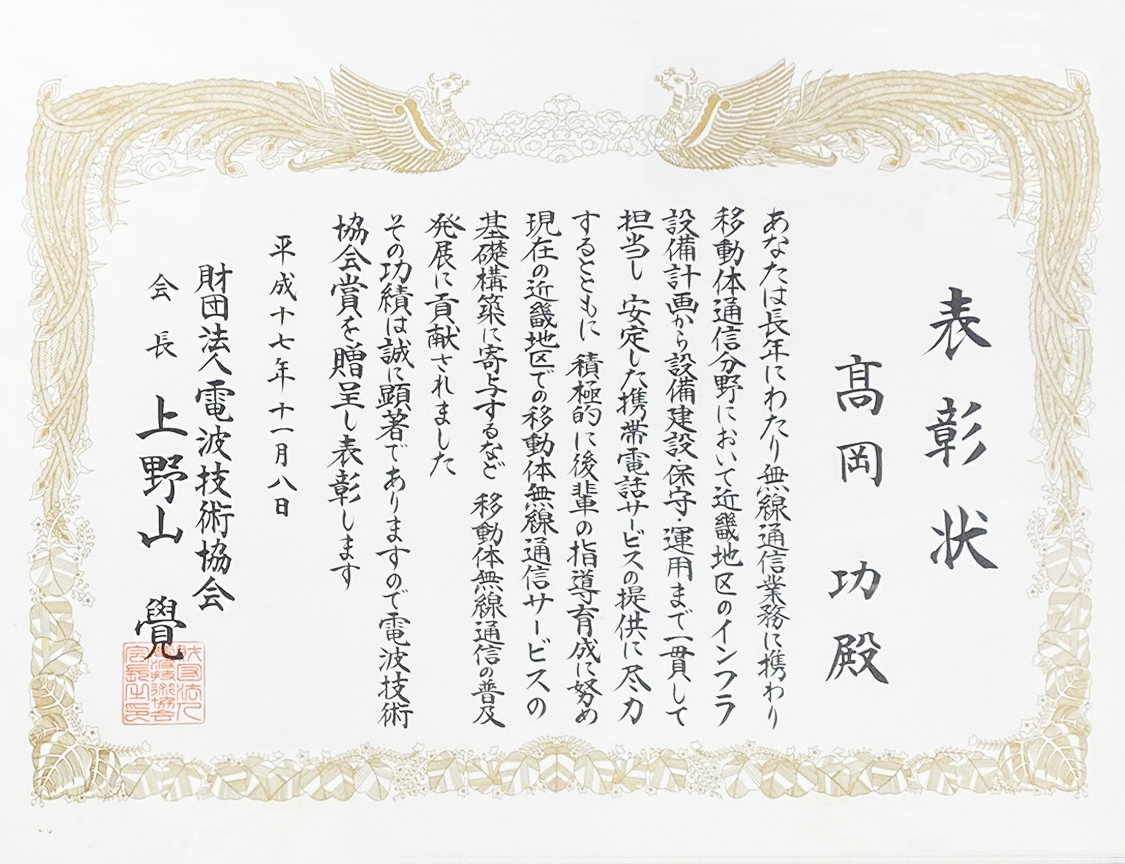 表彰状
髙岡功殿
あなたは長年にわたり無線通信業務に携わり
移動体通信分野において近畿地区のインフラ
設備計画から設備建設・保守・運用まで一貫して
担当し 安定した携帯電話サービスの提供に尽力
するとともに 積極的に後輩の指導育成に努め
現在の近畿地区での移動体無線通信サービスの
基礎構築に寄与するなど 移動体無線通信の普及
発展に貢献されました
その功績は誠に顕著でありますので電波技術
協会賞を贈呈し表彰します
平成十七年十一月八日
財団法人電波技術協会
会長 上野山 覺
財団法人
電波技術協会
会長之印